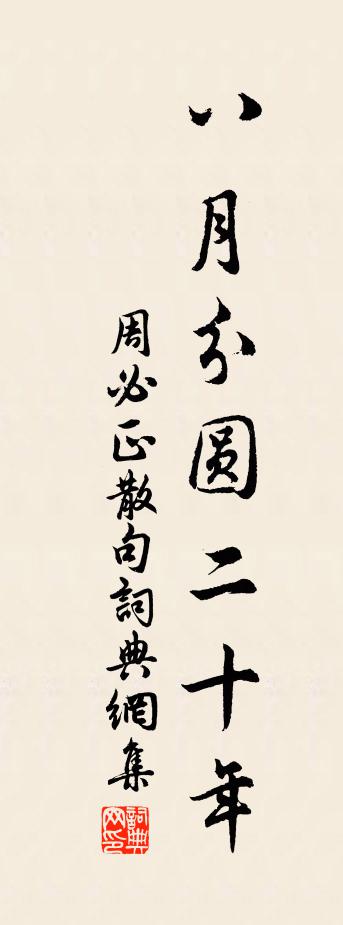 八月分圆二十年
周必正散句詞典網集
詞典網印